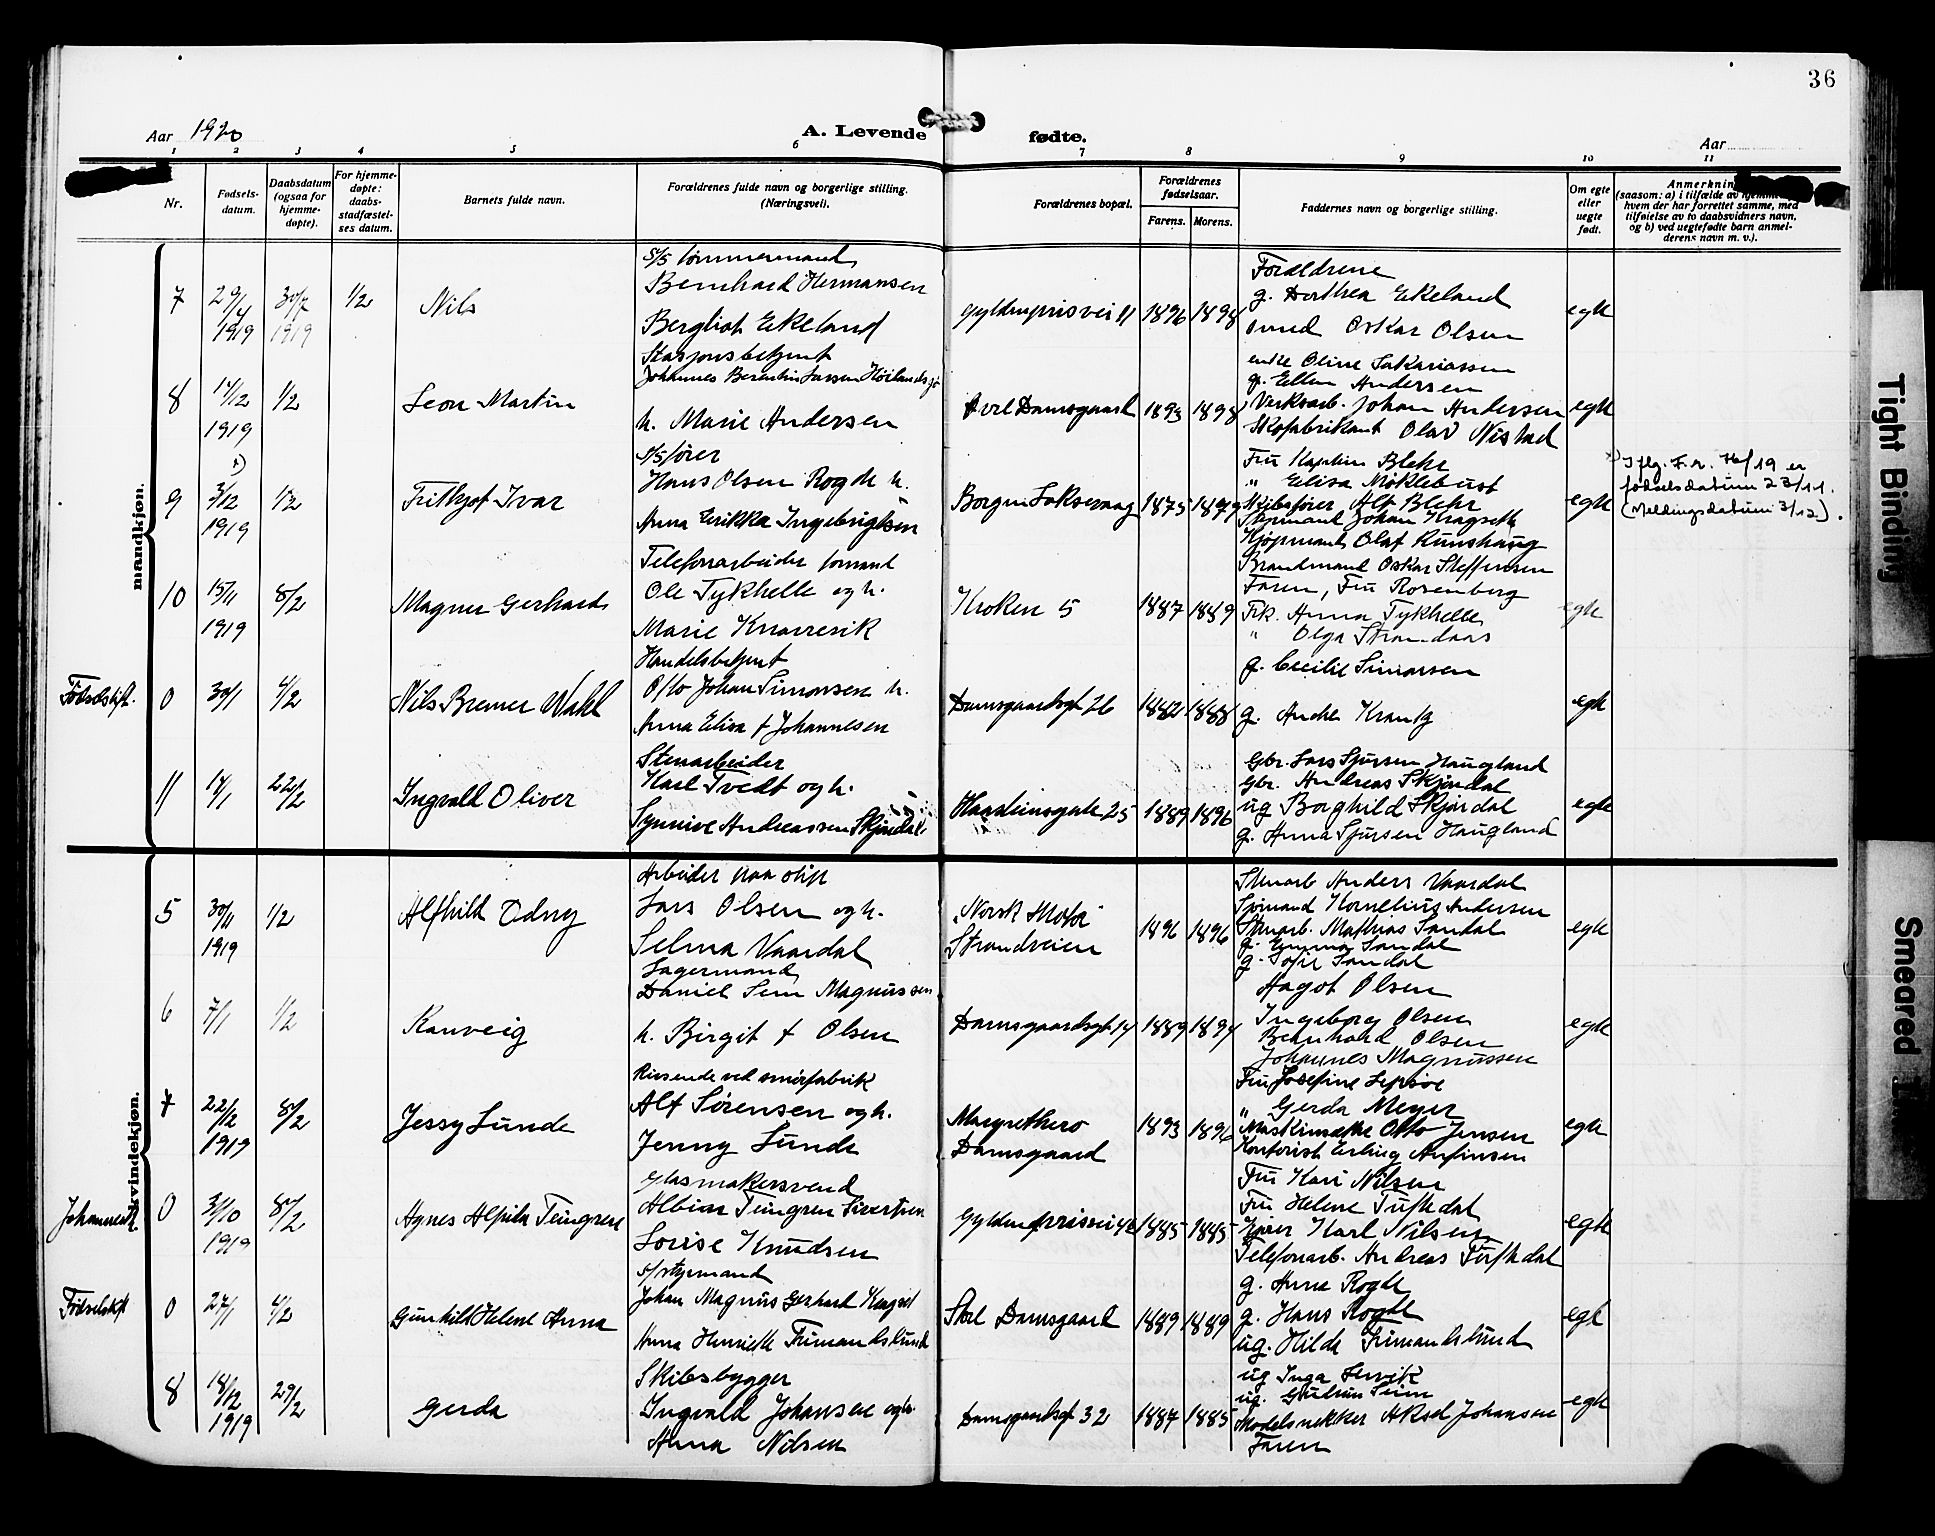 36
Aar 1920
A. Levende fødte.
Aar
1 2 3 4 5 6 7 8 9 10 11
Nr.
Fødsels-
datum.
Daabsdatum
(ogsaa for
hjemme-
døpte).
For hjemme-
døpte:
daabs-
stadfæstel-
ses datum.
Barnets fulde navn.
Forældrenes fulde navn og borgerlige stilling.
(Næringsvei).
Forældrenes bopæl.
Forældrenes
fødselsaar.
Farens. Morens.
Faddernes navn og borgerlige stilling.
Om egte
eller
uegte
født.
Anmerknin
(saasom: a) i tilfælde av hjemme
hvem der har forrettet samme, med
tilføielse av to daabsvidners navn,
og b) ved uegtefødte barn anmel-
derens navn m. v.).
mandkjøn.
7
29/4
1919
30/7
1919
1/2
Nils
S/S tømmermand
Bernhard Hermansen
Bergliot Ekeland
Gyldenprisvei 11
1896 1898
Forældrene
g. Dorthea Ekeland
Oskar Olsen
egte
8
14/12
1919
1/2
Leon Martin
Stasjonsbetjent
Johannes Berentin Larsen
h. Marie Andersen
Damsgaard
1893 1898
enke Oline Sakariassen
g. Ellen Andersen
Verksarb. Johan Andersen
Skofabrikant Olav Nistad
egte
9
x)
3/12
1919
1/2
Frithjof Ivar
S/S fører
Hans Olsen Rogde h.
Anna Erikka Ingebrigtsen
Borgen Laksevaag
1875 1879
Fru Kaptein Blehr
" Elisa Møklebust
Skibsfører Alf Blehr
Styrmand Johan Kragseth
Kjøpmand Olaf Runshaug
Brandmand Oskar Steffensen
egte
x) Iflg. F. r. 76/19 er
fødselsdatum 23/11.
(Meldingsdatum 3/12).
10
15/11
1919
8/2
Magne Gerhard
Telefonarbeider formand
Ole Tykhelle og h.
Marie Knarrevik
Kroken 5
1887 1889
Faren, Fru Rosenberg
Frk. Anna Tykhelle
" Olga
egte
Fødselstift.
0
30/1
4/2
Nils Bremer Wahl
Handelsbetjent
Otto Johan Simonsen h.
Anna Elisa f Johannesen
Damsgaardsgt 26
1882 1888
g. Cecilie Simonsen
g. Andrea Krantz
egte
11
14/1
22/2
Ingvald Oliver
Stenarbeider
Karl Tvedt og h.
Synnive Andreassen Skjørdal
Haasteinsgate 25
1889 1896
Gbr. Lars Sjursen Haugland
Gbr. Andreas Skjørdal
ug Borghild Skjørdal
g. Anna Sjursen Haugland
egte
kvindekjøn.
5
30/11
1919
1/2
Alfhild Odny
Arbeider paa slip
Lars Olsen og h.
Selma Vaardal
"Norsk Motor"
Strandveien
1896 1896
Stenarb Anders Vaardal
Sjømand Kornelius Andersen
Stenarb. Mathias Sandal
g. Emma Sandal
g. Sofie Sandal
egte
6
7/1
1/2
Ranveig
Lagermand
Daniel Sem Magnussen
h. Birgit f Olsen
Damsgaardsgt 14
1889 1894
Aagot Olsen
Ingeborg Olsen
Bernhard Olsen
Johannes Magnussen
egte
7
22/12
1919
8/2
Jessy Sunde
Reisende ved smørfabrik
Alf Sørensen og h.
Jenny Sunde
Margrethero
Damsgaard
1893 1896
Fru Josefine Lepsøe
" Gerda Meyer
Otto Jensen
Kontorist Erling Anfinsen
egte
0
31/10
1919
8/2
Agnes Alfhild Teingren
Glasmakersvend
Albin Teingren Sivertsen
Lovise Knudsen
Gyldenprisvei 46
1885 1885
Fru Kari Nilsen
Fru Helene Tuftedal
Karl Nilsen
Telefonarb. Andreas Tuftedal
egte
Fødselstift
0
27/1
4/2
Gunhild Helene Anna
S/S styrmand
Johan Magnus Gerhard
Anna Henriette Frimandslund
Store Damsgaard
1889 1889
g. Anna Rogde
g. Hans Rogde
ug. Hilda Frimandslund
egte
8
18/12
1919
29/2
Gerda
Skibsbygger
Ingvald Johansen og h.
Anna Nilsen
Damsgaardsgt 32
1887 1885
ug Inga Lervik
ug. Gudrun Seim
Modelsnekker Aksel Johansen
Faren
egte
Tight Binding
Smeared